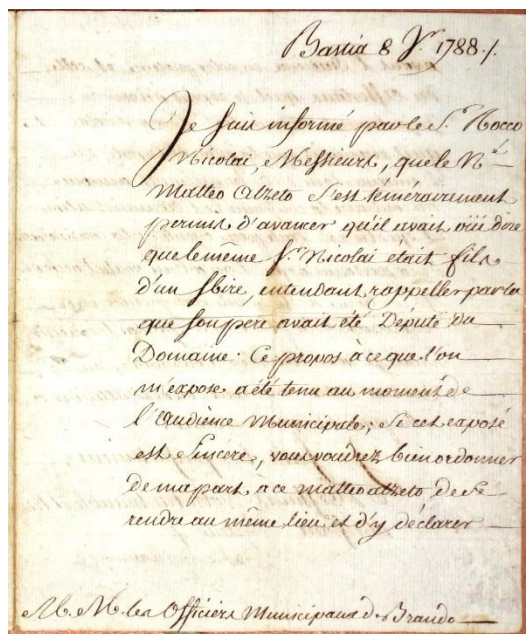 Bastia 8 7.re 1788./.
Je suis informé par le S.r Rocco
Nicolai, Messieurs, que le N.é
Matteo Alzeto s'est témérairement
permis d'avancer qu'il avait oüi dire
que le même S.r Nicolai était fils
d'un sbire, entendant rappeller par la
que son pere avait été Député du
Domaine. Ce propos à ce que l'on
m'expose a été tenu au moment de
l'audience Municipale; Si cet exposé
est sincere, vous voudrez bien ordonner
de ma part a ce Matteo alzeto de se
rendre au même lieu et d'y déclarer
M. M. les Officiers Municipaux de Brando